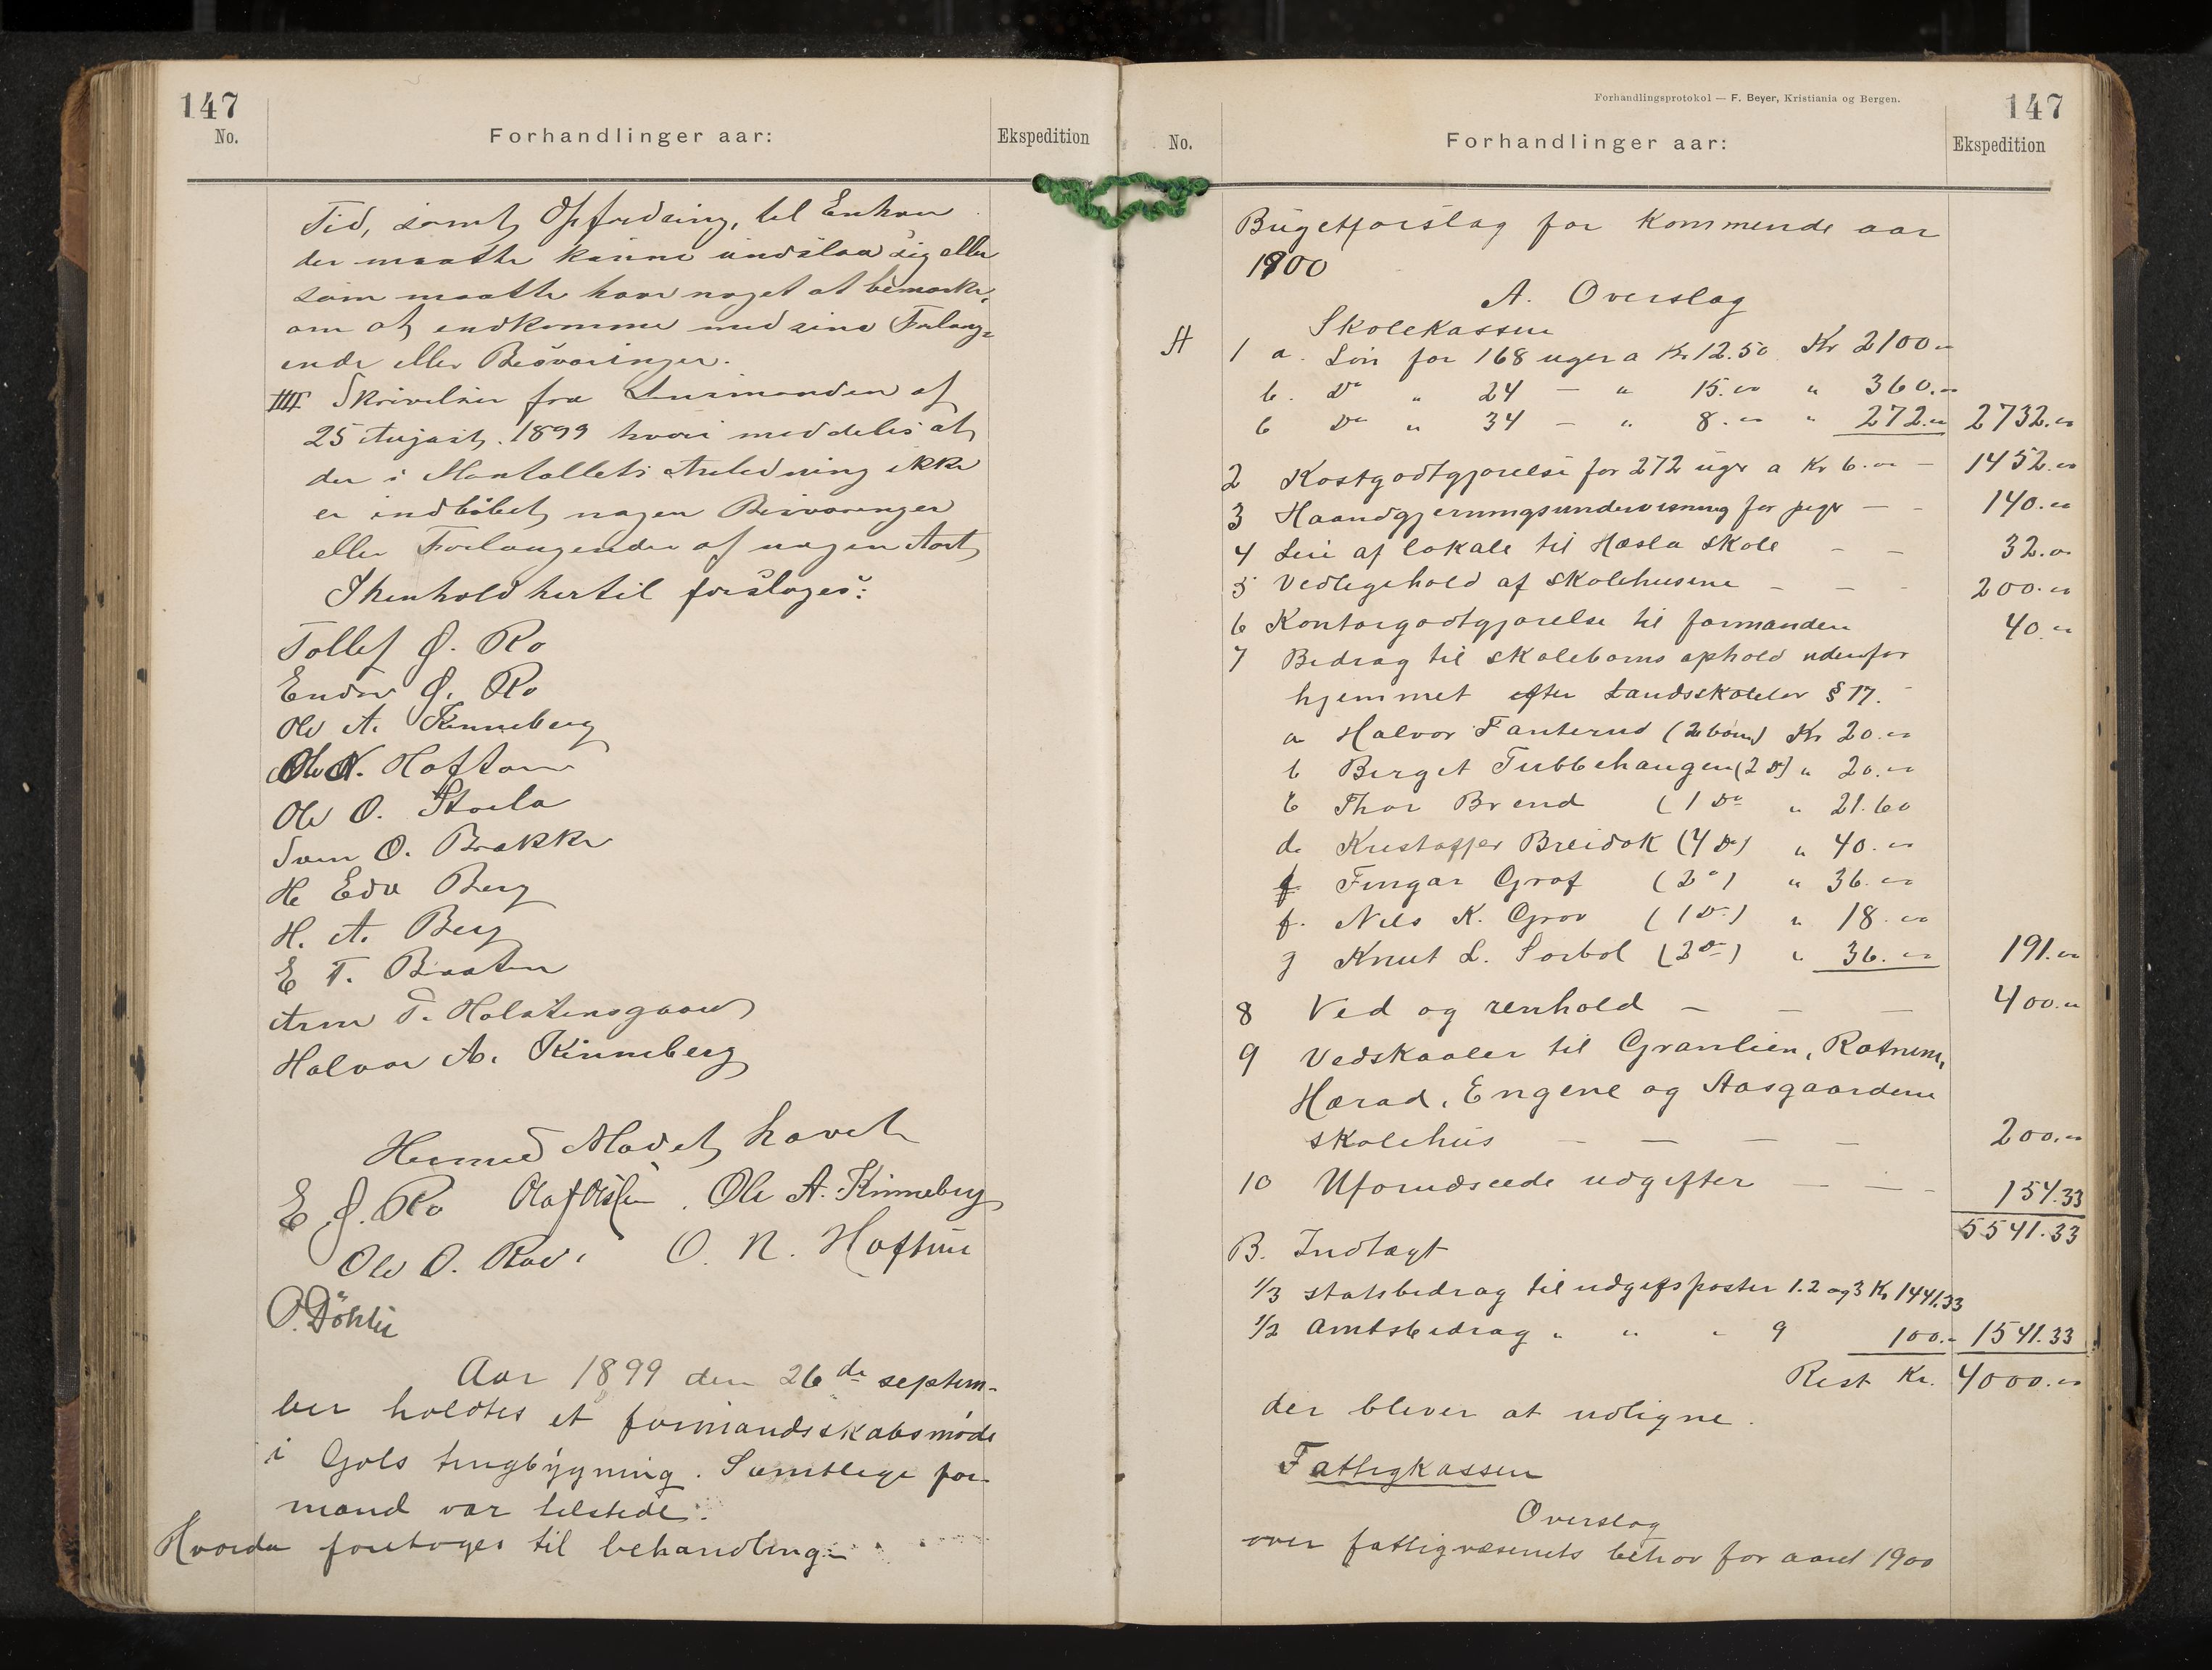 147
No.
Forhandlinger aar:
Ekspedition
Tid, samt Opfordring, til Enhver
der maatte kunne undslaa sig eller
som maatte have noget at bemærke,
om at indkomme med sine Forlang-
ende eller Besværinger.
IIII Skrivelse fra Lensmanden af
25 August 1899 hvori meddeles at
der i Mantallets Anledning ikke
er indløbet nogen Besværinger
eller Forlangender af nogen Art
I henhold hertil forslages:
Tollef J. Ro
Endre J. Ro
Ole A. Kinneberg
Ole N. Haftorn
Ole O. Storla
Sven O. Brække
H Edv Berg
H. A. Berg
E T. Braaten
Arne T. Halstensgaard
Halvor A. Kinneberg
Hermed Mødet hævet
E. J. Ro Olaf Olsen. Ole A. Kinneberg
Ole O. O. N. Haftun
O. Döhli
Aar 1899 den 26de septem-
ber holdtes et formandsskabsmøde
i Gols tingbygning. Samtlige for-
mænd var tilstede.
Hvorda foretoges til behandling:
Forhandlingsprotokol — F. Beyer, Kristiania og Bergen.
147
No.
Forhandlinger aar:
Ekspedition
Bügetforslag for Kommende aar
1900
A. Overslag
A Skolekassen
1 a. Løn for 168 uger a Kr 12.50 Kr 2100.-
b. Do " 24 — " 15.00 " 360.-
c Do " 34 — " 8.00 " 272.00 2732.00
2 Kostgodtgjørelse for 272 uger a Kr 6.00 — 1452.00
3 Haandgjerningsundervisning for piger — - 140.00
4 Leie af lokale til Hæsla skole - - 32.00
5 Vedligehold af skolehusene - - - 200.00
6 Kontorgodtgjørelse til formanden 40.00
7 Bidrag til skolebørns ophold udenfor
hjemmet efter Landsskolelov § 17.
a Halvor Fanterud (2 børn) Kr 20.00
b Birget Tubbehaugen (2 Do) " 20.00
c Thor Brend (1 Do " 21.60
d. Kristoffer Breidok (4 Do) " 40.00
Fingar Grøf (2 ") " 36.00
f. Nils K. Grov (1 Do) " 18.00
g Knut L. Sørbøl (2 Do) " 36.00 191.00
8 Ved og renhold — — — 400.00
9 Vedskaaler til Granlien, Rotneim,
Hærad, Engene og Aasgaardene
skolehus — — — — 200.00
10 Uforudseede udgifter — — - 154.33
5541.33
B. Indtægt
1/3 statsbidrag til udgiftsposter 1.2 og 3 Kr 1441.33
1/2 Amtsbidrag " " " 9 100.- 1541.33
Rest Kr. 4000.00
der bliver at udligne.
Fattigkassen
Overslag
over fattigvæsenets behov for aaret 1900